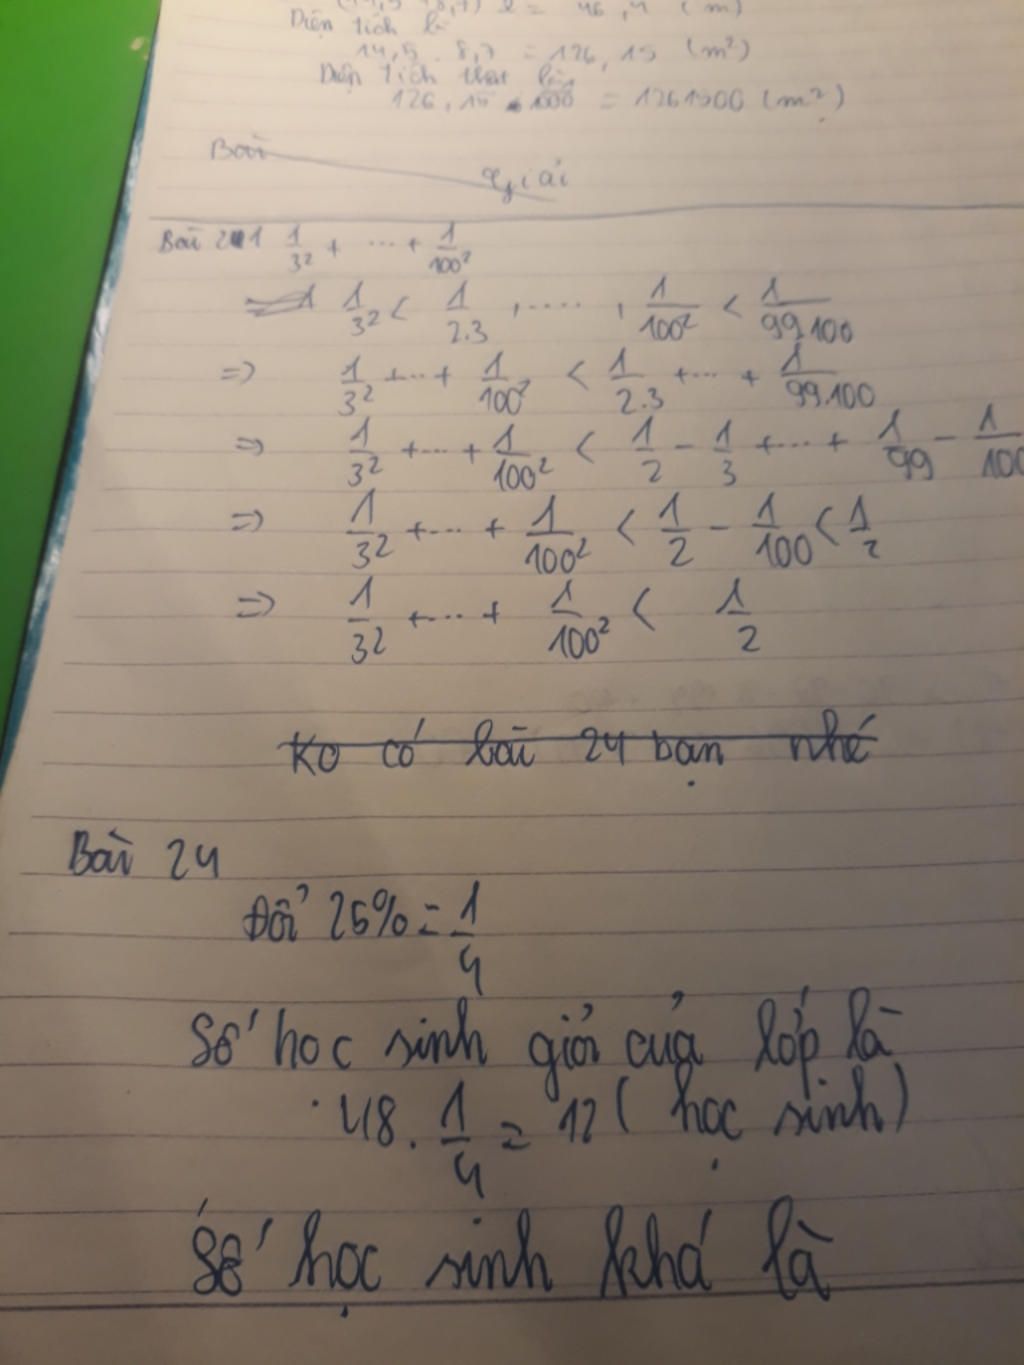 46,4 (m)
Diện tích
14,5 . 8,7 = 126,15 (m²)
Diện tích
126,15 . = 1261500 (m²)
Bài
giải
Bài 1/3² + ... + 1/100²
1/3² < 1/2.3 , ..... , 1/100² < 1/99.100
=> 1/3² + ... + 1/100² < 1/2.3 + ... + 1/99.100
=> 1/3² + ... + 1/100² < 1/2 - 1/3 + ... + 1/99 - 1/100
=> 1/3² + ... + 1/100² < 1/2 - 1/100 < 1/2
=> 1/3² + ... + 1/100² < 1/2
Ko có bài 24 bạn nhé
Bài 24
Đổi 25% = 1/4
Số hoc sinh giỏi của lớp là
48 . 1/4 = 12 ( học sinh)
Số học sinh khá là